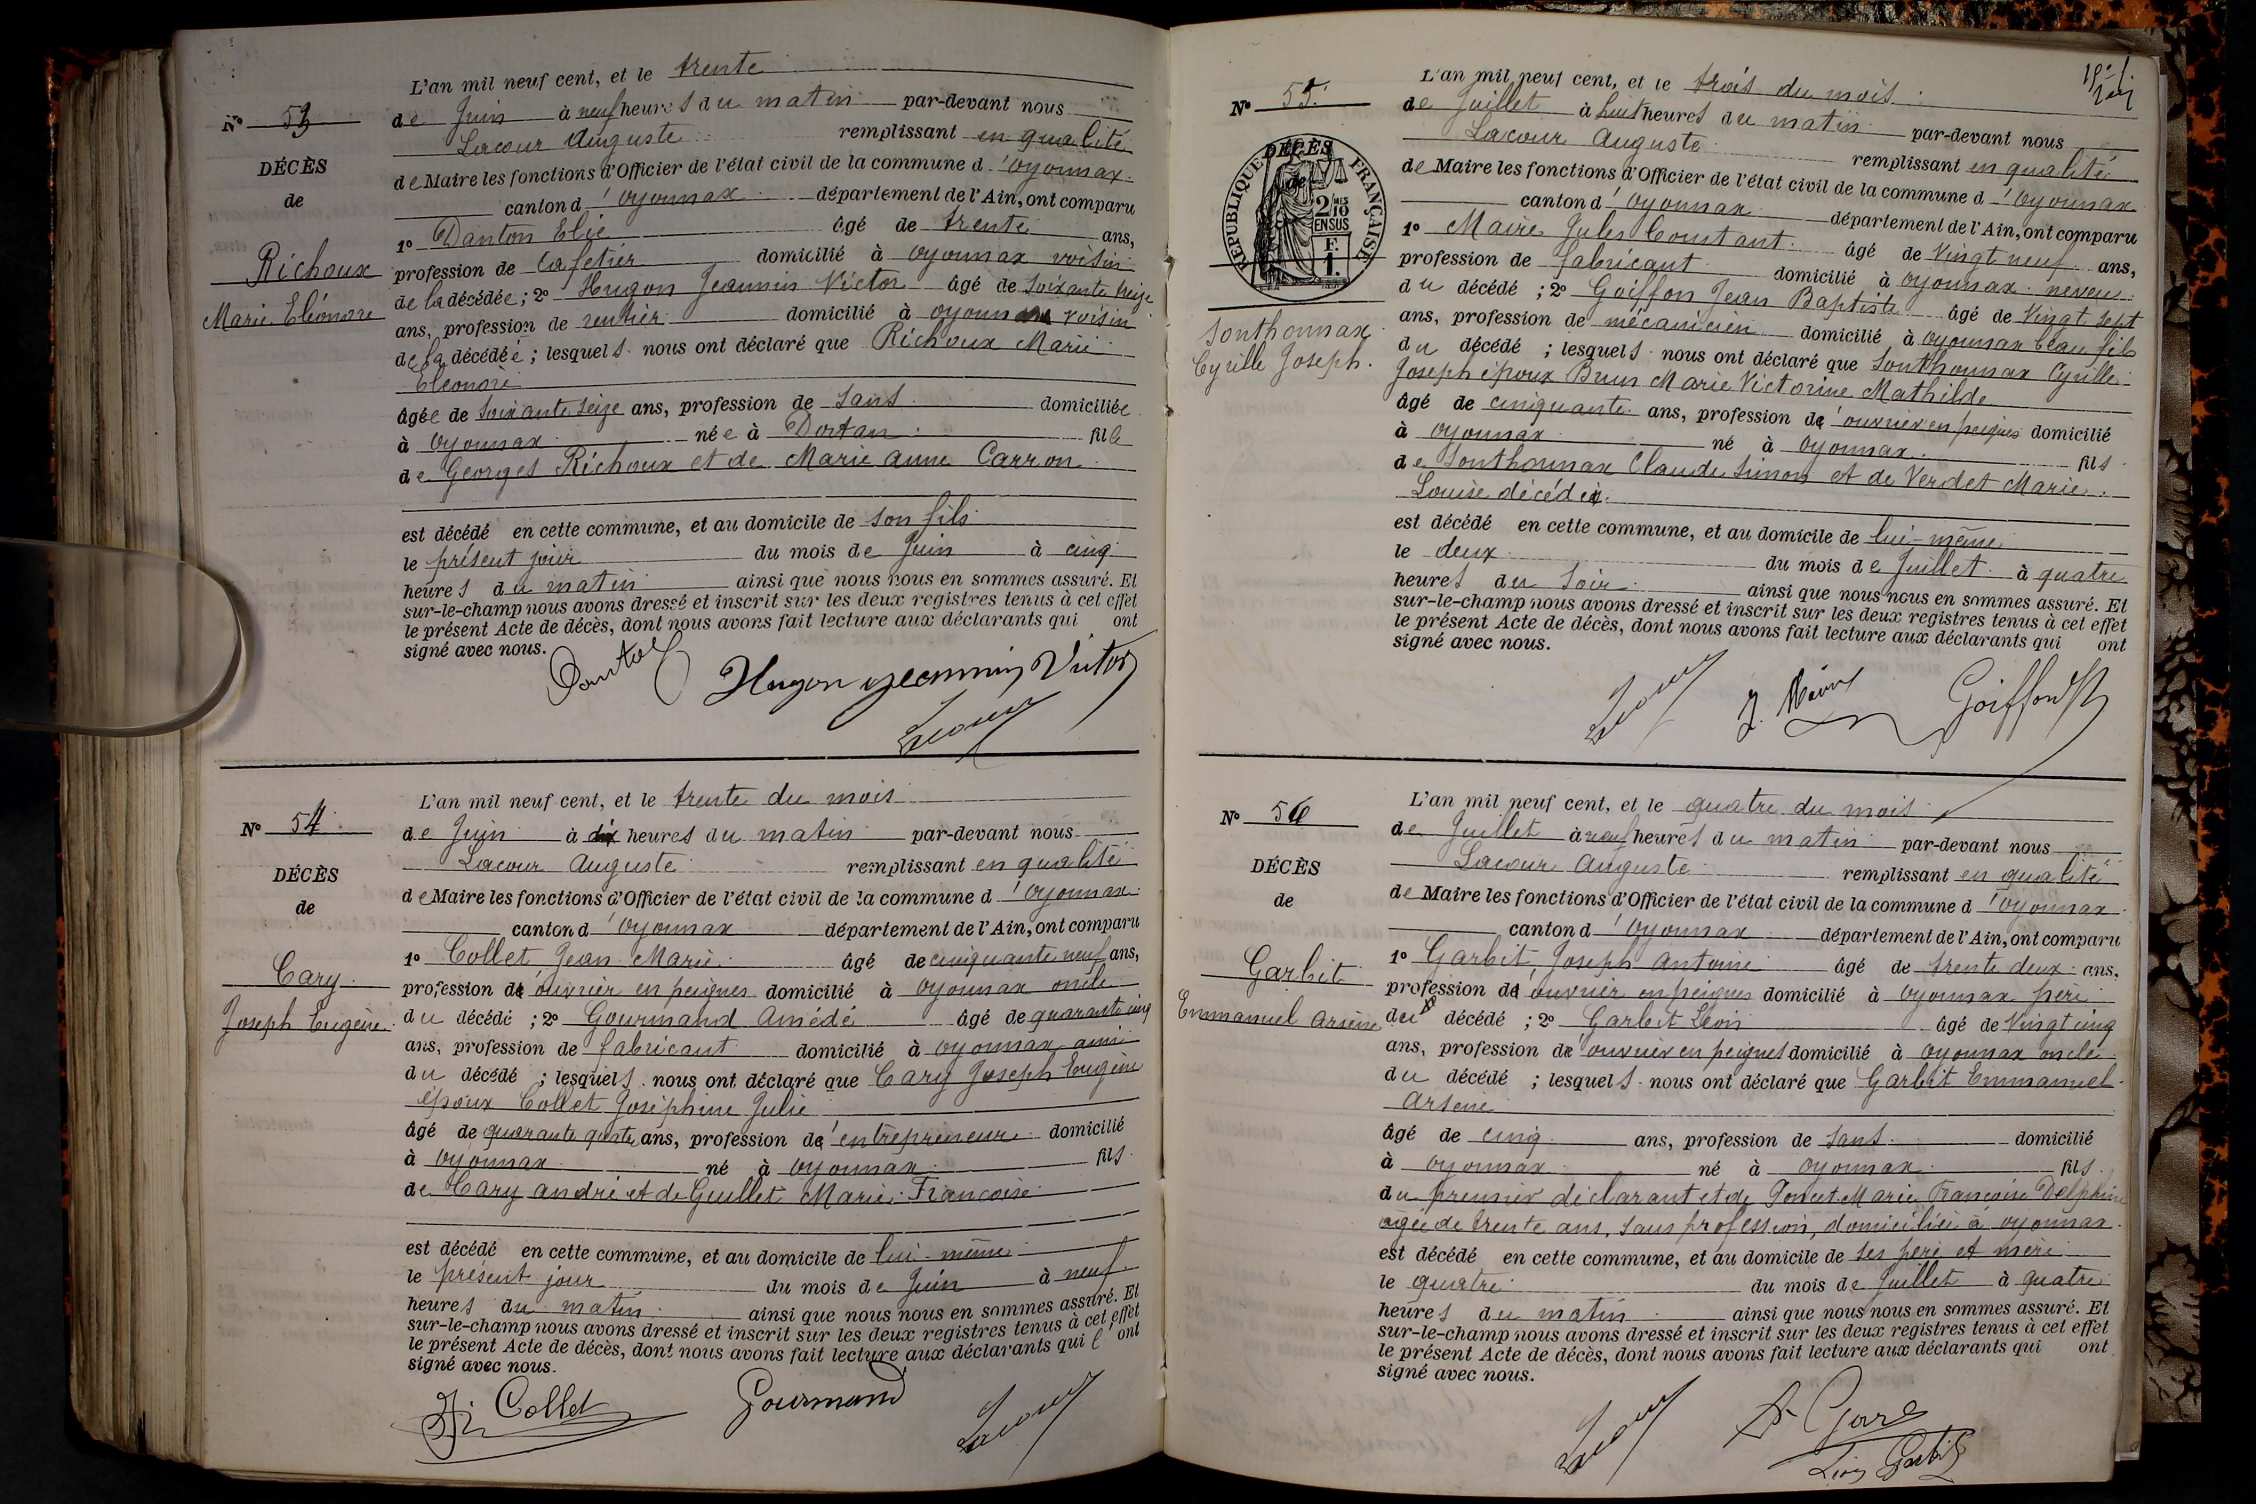 N° 53
DÉCÈS
de
Richoux
Marie Eléonore
L'an mil neuf cent, et le trente
de Juin à neuf heures du matin par-devant nous
Lacour Auguste remplissant en qualité
de Maire les fonctions d'Officier de l'état civil de la commune d'Oyonnax
canton d'Oyonnax département de l'Ain, ont comparu
1° Danton Elie âgé de trente ans,
profession de Cafetier domicilié à Oyonnax voisin
de la décédée ; 2° Hugon Jeannin Victor âgé de soixante treize
ans, profession de rentier domicilié à Oyonnax voisin
de la décédée ; lesquels nous ont déclaré que Richoux Marie
Eléonore
âgée de soixante seize ans, profession de sans domiciliée
à Oyonnax née à Dortan fille
de Georges Richoux et de Marie Anne Carron
est décédé en cette commune, et au domicile de son fils
le présent jour du mois de Juin à cinq
heures du matin ainsi que nous nous en sommes assuré. Et
sur-le-champ nous avons dressé et inscrit sur les deux registres tenus à cet effet
le présent Acte de décès, dont nous avons fait lecture aux déclarants qui ont
signé avec nous.
Danton Hugon Jeannin Victor
Lacour
N° 54
DÉCÈS
de
Cary
Joseph Eugène
L'an mil neuf cent, et le trente du mois
de Juin à dix heures du matin par-devant nous
Lacour Auguste remplissant en qualité
de Maire les fonctions d'Officier de l'état civil de la commune d'Oyonnax
canton d'Oyonnax département de l'Ain, ont comparu
1° Collet Jean Marie âgé de cinquante neuf ans,
profession d'ouvrier en peignes domicilié à Oyonnax oncle
du décédé ; 2° Gourmand Amédé âgé de quarante cinq
ans, profession de fabricant domicilié à Oyonnax ami
du décédé ; lesquels nous ont déclaré que Cary Joseph Eugène
époux Collet Joséphine Julie
âgé de quarante quatre ans, profession d'entrepreneur domicilié
à Oyonnax né à Oyonnax fils
de Cary André et de Guillet Marie Françoise
est décédé en cette commune, et au domicile de lui-même
le présent jour du mois de Juin à neuf
heures du matin ainsi que nous nous en sommes assuré. Et
sur-le-champ nous avons dressé et inscrit sur les deux registres tenus à cet effet
le présent Acte de décès, dont nous avons fait lecture aux déclarants qui l'ont
signé avec nous.
Collet Gourmand Lacour
N° 55
RÉPUBLIQUE FRANÇAISE
2/10 EN SUS
F. 1.
DÉCÈS
de
Sonthonnax
Cyrille Joseph.
L'an mil neuf cent, et le trois du mois
de Juillet à huit heures du matin par-devant nous
Lacour Auguste remplissant en qualité
de Maire les fonctions d'Officier de l'état civil de la commune d'Oyonnax
canton d'Oyonnax département de l'Ain, ont comparu
1° Maire Jules Constant âgé de vingt neuf ans,
profession de fabricant domicilié à Oyonnax neveu
du décédé ; 2° Goiffon Jean Baptiste âgé de vingt sept
ans, profession de mécanicien domicilié à Oyonnax beau fils
du décédé ; lesquels nous ont déclaré que Sonthonnax Cyrille
Joseph époux Brun Marie Victorine Mathilde
âgé de cinquante ans, profession d'ouvrier en peignes domicilié
à Oyonnax né à Oyonnax fils
de Sonthonnax Claude Simon et de Verdet Marie
Louise décédés.
est décédé en cette commune, et au domicile de lui-même
le deux du mois de Juillet à quatre
heures du soir ainsi que nous nous en sommes assuré. Et
sur-le-champ nous avons dressé et inscrit sur les deux registres tenus à cet effet
le présent Acte de décès, dont nous avons fait lecture aux déclarants qui ont
signé avec nous.
Lacour J. Maire Goiffon
N° 56
DÉCÈS
de
Garbit
Emmanuel Arsène
L'an mil neuf cent, et le quatre du mois
de Juillet à neuf heures du matin par-devant nous
Lacour Auguste remplissant en qualité
de Maire les fonctions d'Officier de l'état civil de la commune d'Oyonnax
canton d'Oyonnax département de l'Ain, ont comparu
1° Garbit Joseph Antoine âgé de trente deux ans,
profession d'ouvrier en peignes domicilié à Oyonnax père
du décédé ; 2° Garbit Léon âgé de vingt cinq
ans, profession d'ouvrier en peignes domicilié à Oyonnax oncle
du décédé ; lesquels nous ont déclaré que Garbit Emmanuel
Arsène
âgé de cinq ans, profession de sans domicilié
à Oyonnax né à Oyonnax fils
du premier déclarant et de Poncet Marie Françoise Delphine
agée de trente ans, sans profession, domiciliée à Oyonnax
est décédé en cette commune, et au domicile de ses père et mère
le quatre du mois de Juillet à quatre
heures du matin ainsi que nous nous en sommes assuré. Et
sur-le-champ nous avons dressé et inscrit sur les deux registres tenus à cet effet
le présent Acte de décès, dont nous avons fait lecture aux déclarants qui ont
signé avec nous.
Lacour
Léon Garbit